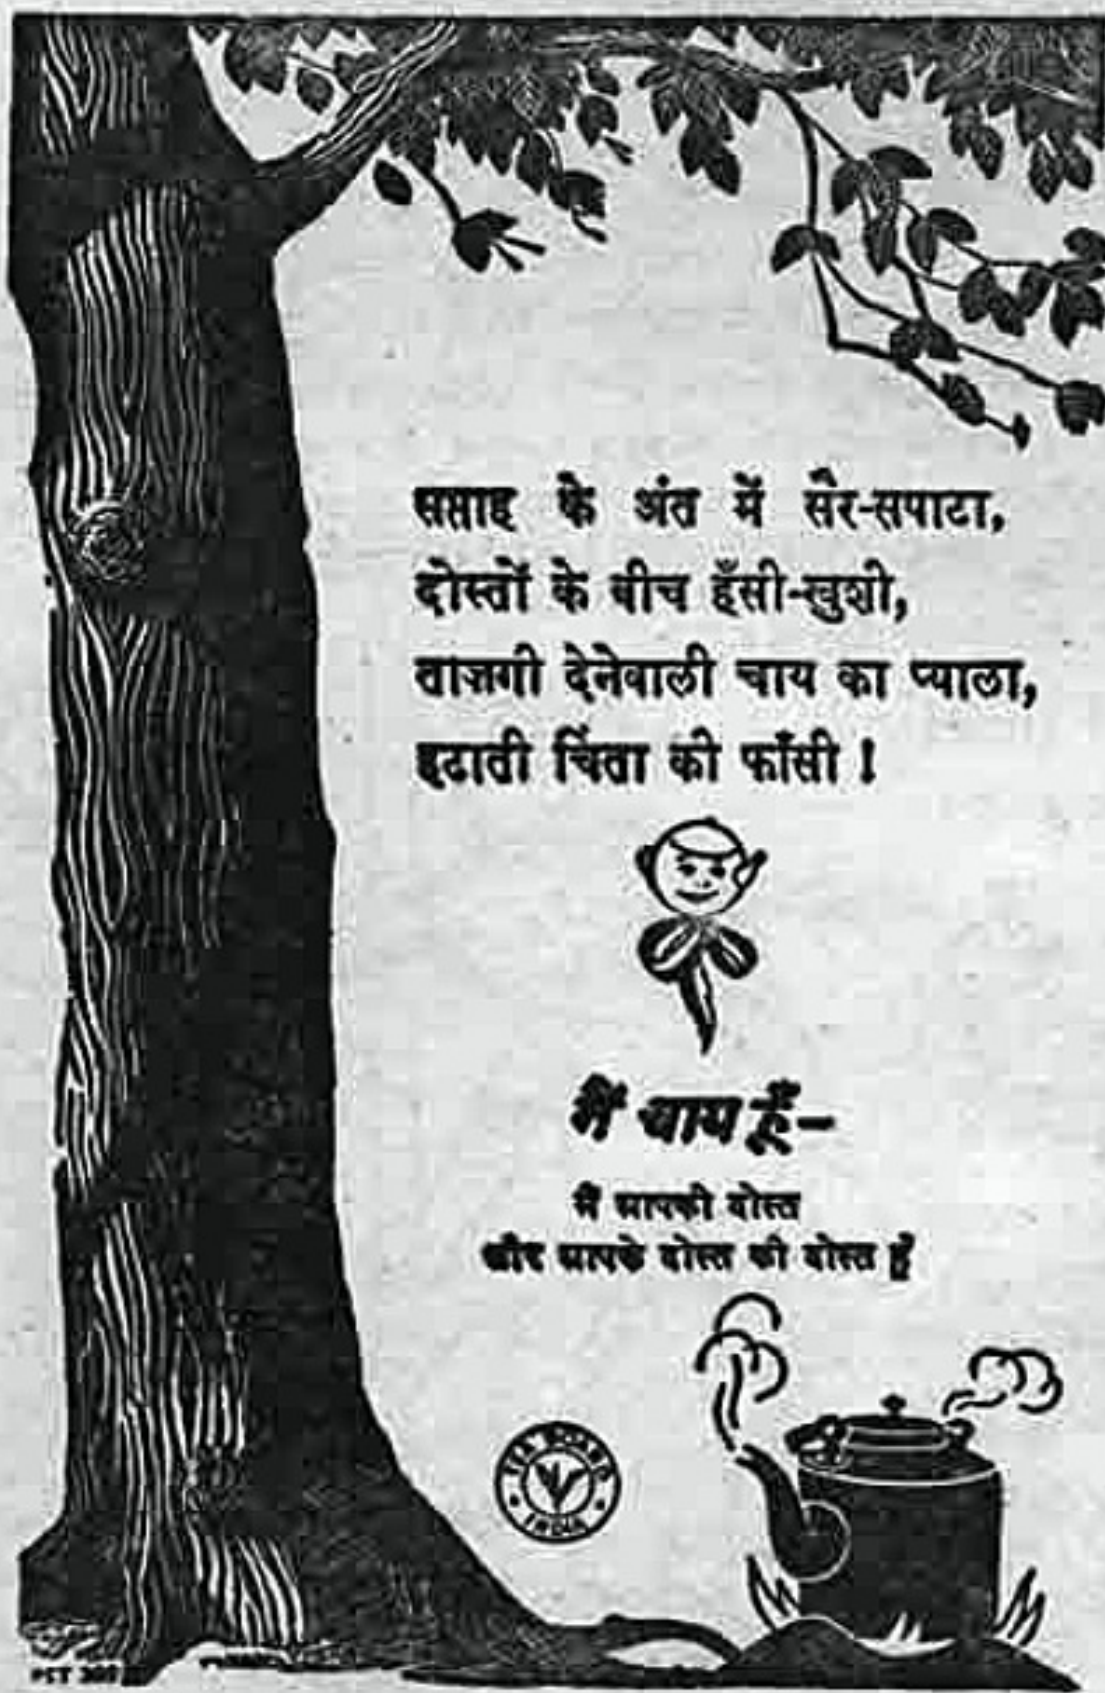 सप्ताह के अंत में सैर-सपाटा,
दोस्तों के बीच हँसी-खुशी,
ताज़गी देनेवाली चाय का प्याला,
हटाती चिंता की फाँसी !
मैं चाय हूँ–
मैं आपकी दोस्त
और आपके दोस्त की दोस्त हूँ
TEA BOARD
INDIA
PCT